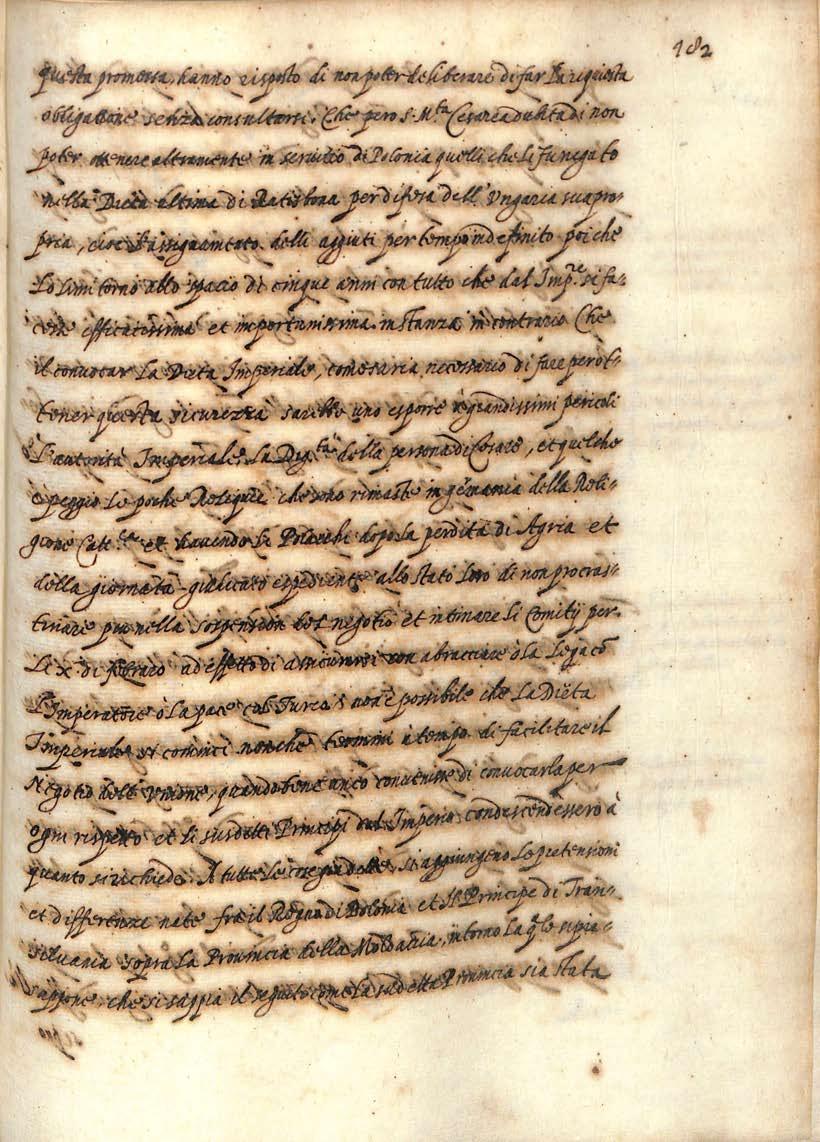 182
questa promessa, hanno risposto di non poter deliberare di far la riquista
obligatione senza consultarsi. Che però S. M.tà Cesarea dubita di non
poter ottenere altramente in servitio di Polonia quelli che li fu negato
nella Dieta ultima di Ratisbona per difesa dell' Ungaria sua pro-
pria, cioè l'assignamtato delli aggiuti per tempo indefinito poi che
Lo Limitorno allo spacio di cinque anni con tutto che dal Imp.re si fa-
cesse efficacissima et importunissima instanza in contrario Che
il convocar La Dieta Imperiale, come saria necessario di fare per ot-
tener questa sicurezza sarebbe uno esporre à grandissimi pericoli
L'autorità Imperiale. La Dig.tà della persona di Cesare, et quel che
è peggio Le poche Reliquie che sono rimaste in Germania della Reli-
gione Catt.ca et havendo Li Polacchi dopo la perdita di Agria et
della giornata giudicato espediente allo stato Loro di non procras-
tinare piu nella sospensione del negotio et intimare Li Comitij per
Li X di febraro ad effetto di assicurarsi con abracciare ò la Legacõ
L'Imperatore ò la pace col Turco, non è possibile che La Dieta
Imperiale si cominci nonche termini à tempo di facilitare il
Negotio dell' unione, quando bene anco convenisse di convocarla per
ogni rispetto et li sudetti Principi dal Imperio condescendessero à
quanto si richiede. A tutte Le cose predette si aggiungeno Le pretensioni
et differenze nate fra il Regno di Polonia et Il Principe di Tran-
silvania sopra La Provincia della Moldavia, intorno La q.le si pre-
suppone, che si sappia il seguito come la sudetta Provincia sia stata